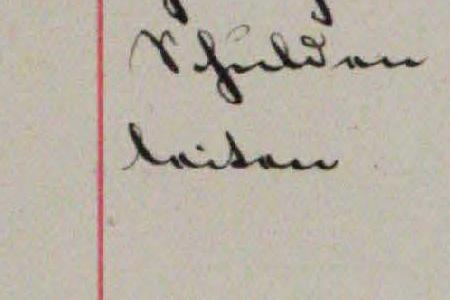 Schulden
leiten